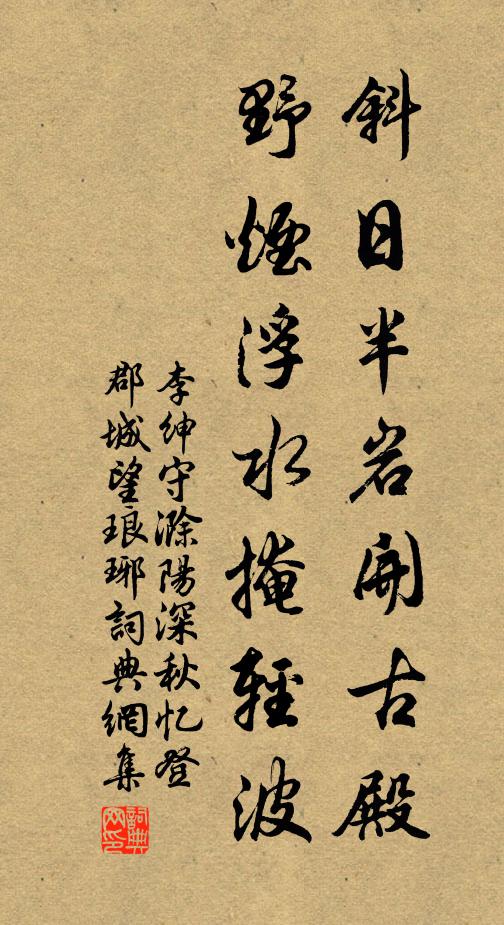 斜日半岩開古殿
野煙浮水掩輕波
李紳守滁陽深秋忆登
郡城望琅琊詞典網集
詞典
网印